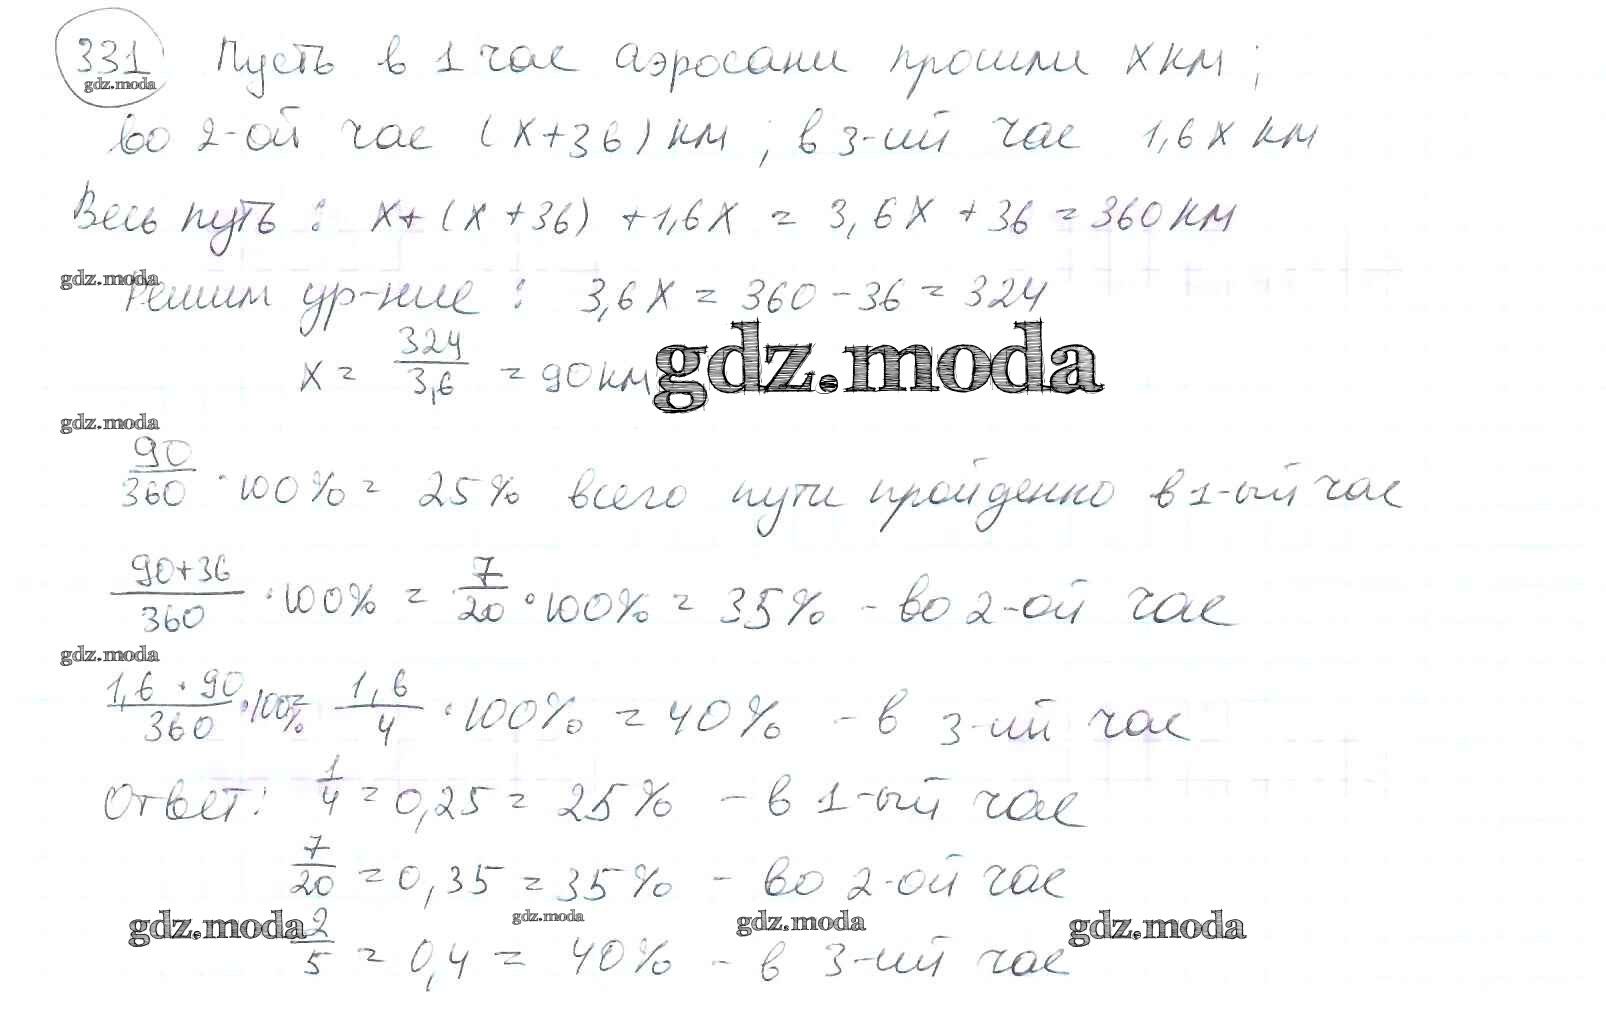 331 Пусть в 1 час аэросани прошли x км;
gdz.moda
во 2-ой час (x+36) км; в 3-ий час 1,6x км
Весь путь: x+(x+36)+1,6x = 3,6x+36 = 360 км
gdz.moda
Решим ур-ние: 3,6x = 360-36 = 324
x = 324/3,6 = 90 км
gdz.moda
gdz.moda
90/360 · 100% = 25% всего пути пройденно в 1-ый час
90+36/360 · 100% = 7/20 · 100% = 35% - во 2-ой час
gdz.moda
1,6 · 90/360 · 100% = 1,6/4 · 100% = 40% - в 3-ий час
Ответ: 1/4 = 0,25 = 25% - в 1-ый час
7/20 = 0,35 = 35% - во 2-ой час
gdz.moda gdz.moda gdz.moda gdz.moda
2/5 = 0,4 = 40% - в 3-ий час